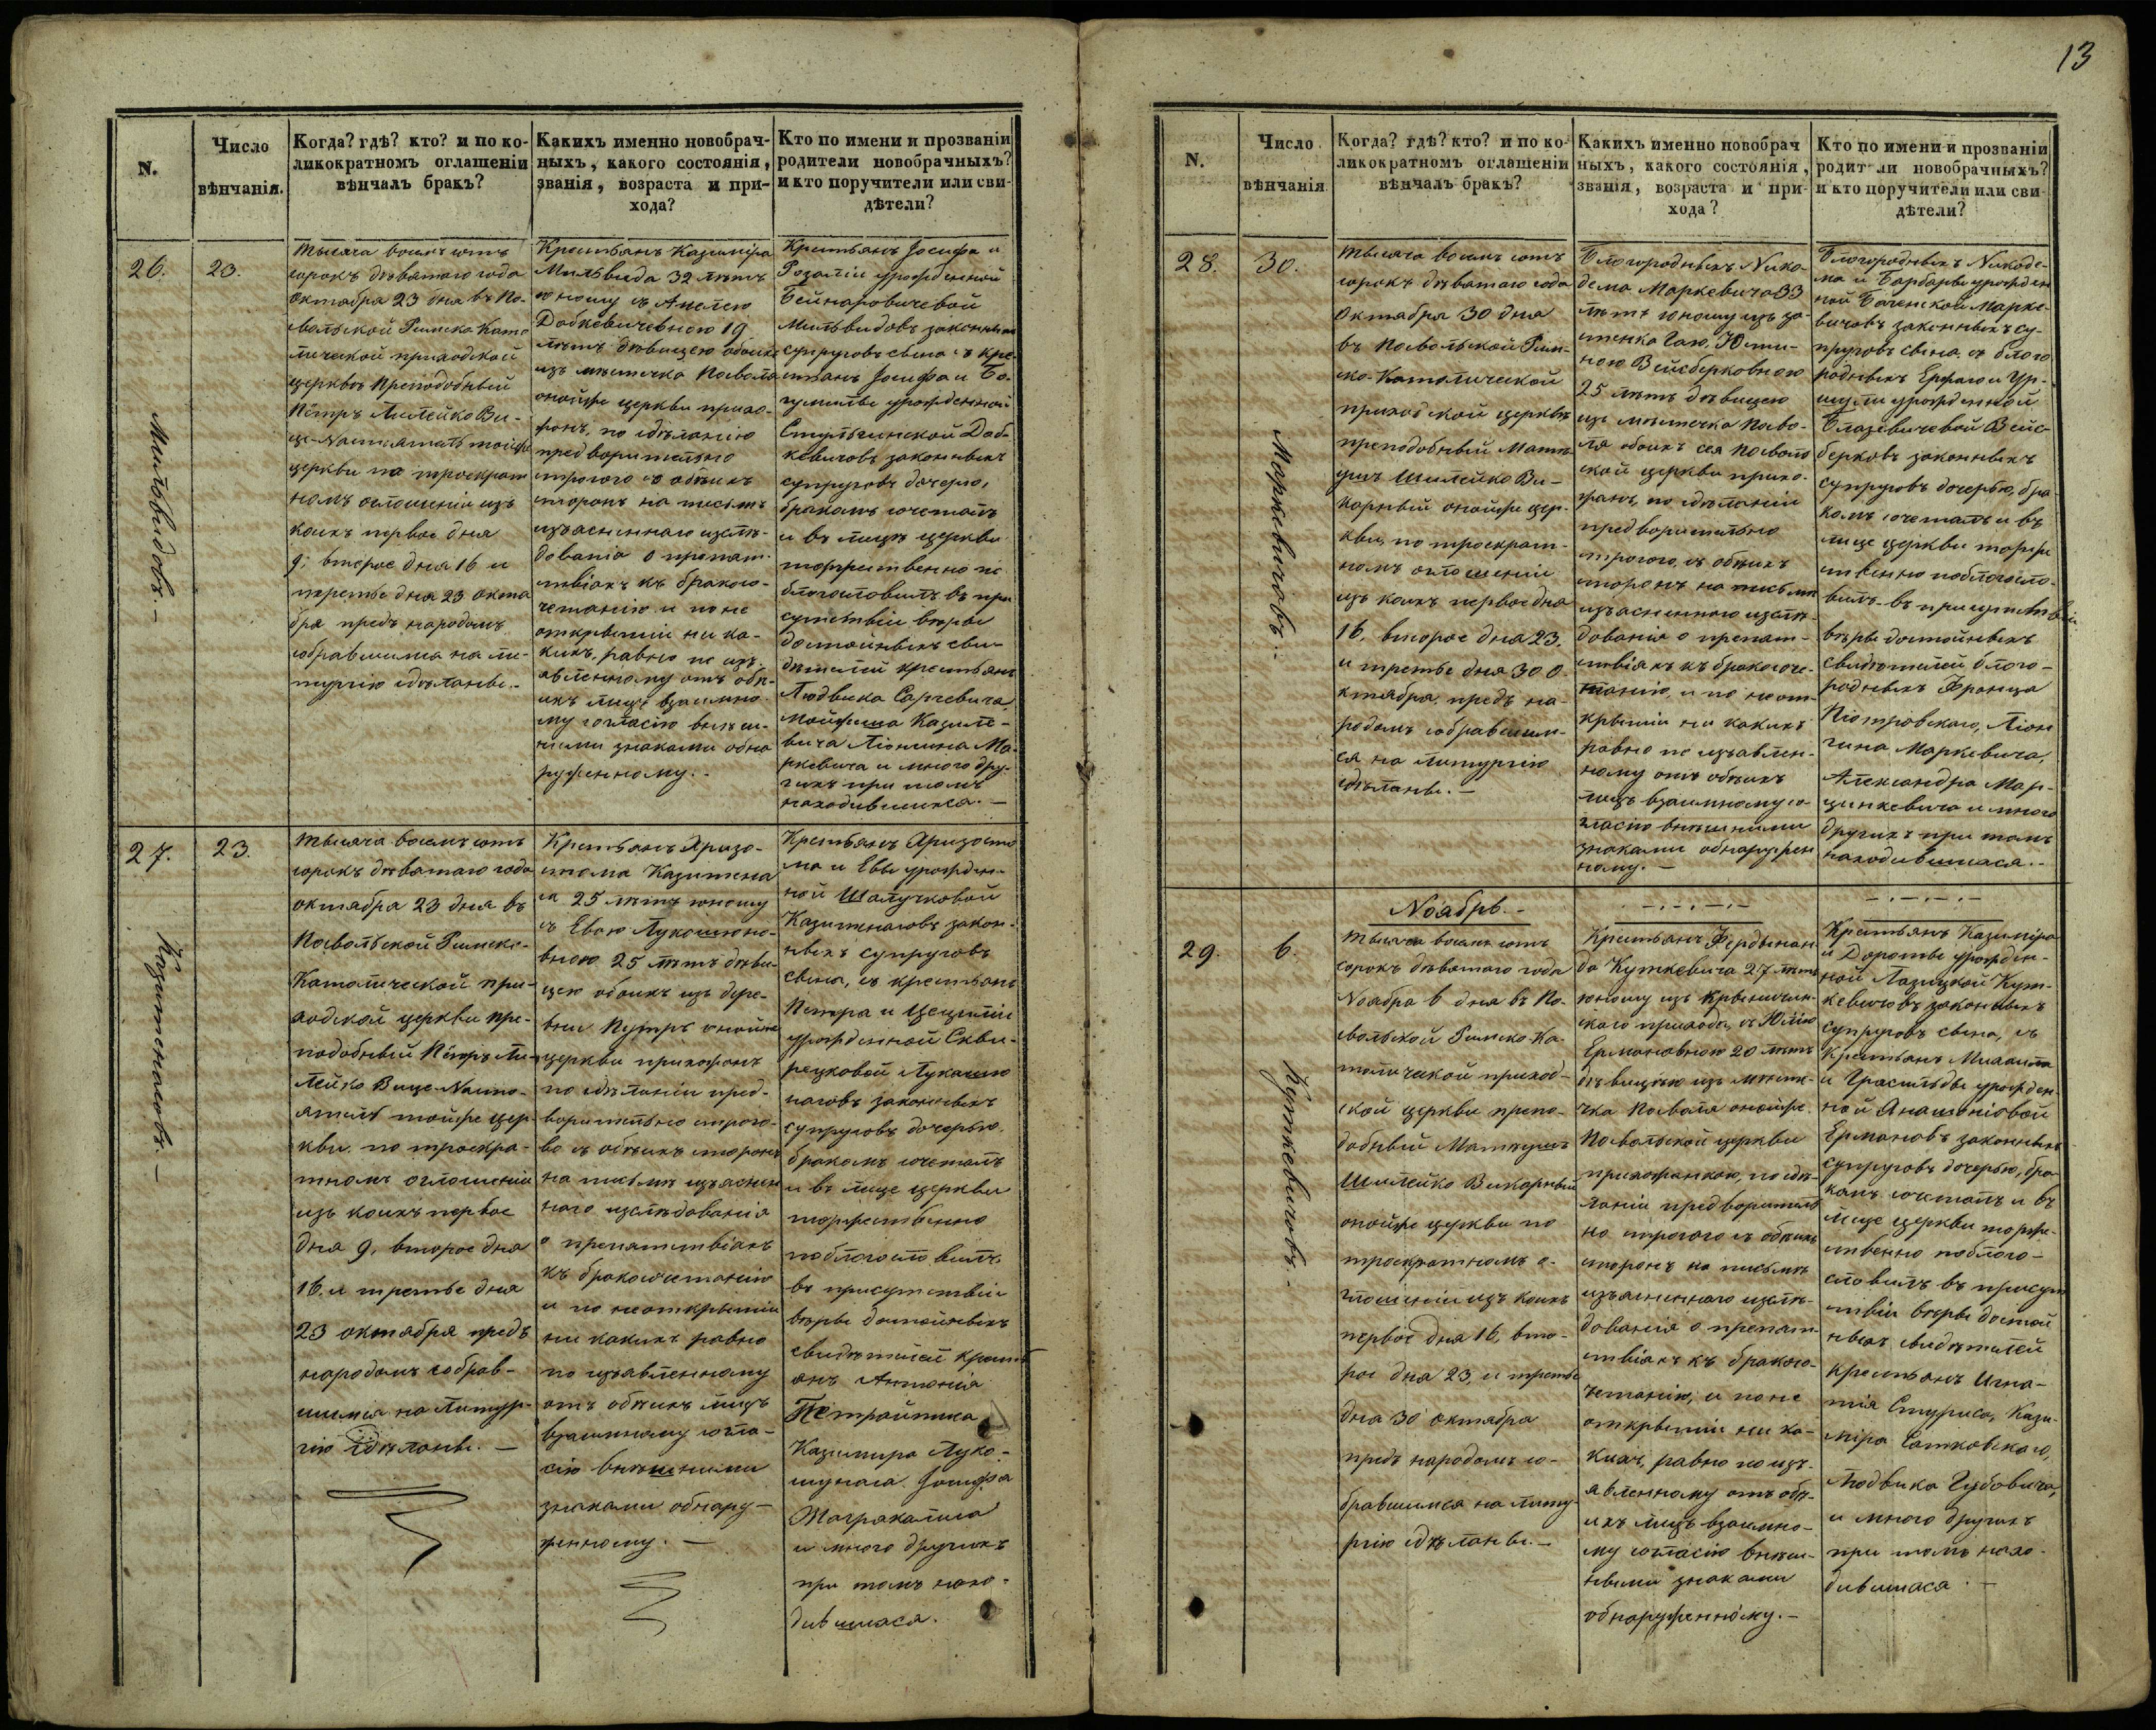 N.
Число
вѣнчанія.
Когда? гдѣ? кто? и по ко-
ликократномъ оглашеніи
вѣнчалъ бракъ?
Какихъ именно новобрач-
ныхъ, какого состоянія,
званія, возраста и при-
хода?
Кто по имени и прозванію
родители новобрачныхъ?
и кто поручители или сви-
дѣтели?
26.
Мильвидовъ.-
23.
Тысяча восемь сотъ
сорокъ девятаго года
Октября 23 дня въ По-
вольской Римско Като
лической приходской
церквѣ Преподобный
Пётръ Лилейко Ви-
це-Настоятель тойже
церкви по троекрат
номъ оглашеніи изъ
коихъ первое дня
9, второе дня 16 и
третье дня 23 октя
бря предъ народомъ
собравшимся на ли-
тургію сдѣланы.-
Крестьянъ Казиміра
Мильвида 32 лѣтъ
юношу съ Анелею
Добкевичевною 19
лѣтъ дѣвицею обоихъ
изъ мѣстечка Поволя
онойже церкви прихо-
жанъ, по сдѣланію
предварительно
строгого съ обѣихъ
сторонъ на письмѣ
изъясненнаго изслѣ-
дованія о препят-
ствіяхъ къ бракосо-
четанію и по не
открытіи ни ка-
кихъ, равно по изъ-
явленному отъ обѣ-
ихъ лицъ взаимно-
му согласію внѣш-
ними знаками обна
руженному.-
Крестьянъ Іосифа и
Розаліи урожденной
Бейнаровичевой
Мильвидовъ законныхъ
супруговъ сына съ кре
стьянъ Іосифа и Бо-
гумилы урожденной
Стульгинской Доб-
кевичовъ законныхъ
супруговъ дочерью,
бракомъ сочеталъ
и въ лицѣ церкви
торжественно по
благословилъ въ при
сутствіи вѣры
достойныхъ сви-
дѣтелей крестьянъ
Людвика Сарчевича,
Казиме-
вича Ліонгина Ма-
ркевича и много дру-
гихъ при томъ
находившихся.-
27.
Казитенасовъ.-
23.
Тысяча восемь сотъ
сорокъ девятаго года
октября 23 дня въ
Повольской Римско-
Католической при-
ходской церкви пре-
подобный Пётръ Ли-
лейко Вице-Насто-
ятель тойже цер
кви по троекра-
тномъ оглашеніи
изъ коихъ первое
дня 9, второе дня
16 и третье дня
23 октября предъ
народомъ собрав-
шимся на Литур-
гію сдѣланы.-
Крестьянъ Хризо-
стома Казитена
са 25 лѣтъ юношу
съ Евою Лукошюно-
вною 25 лѣтъ дѣви-
цею обоихъ изъ дере-
вни Путръ онойже
церкви прихожанъ
по сдѣланіи пред-
варительно строго-
во съ обѣихъ сторонъ
на письмѣ изъяснен
ного изслѣдованія
о препятствіяхъ
къ бракосочетанію
и по неоткрытіи
ни какихъ равно
по изъявленному
отъ обѣихъ лицъ
взаимному согла-
сію внѣшними
знаками обнару-
женному.-
Крестьянъ Хризосто
ма и Евы урожден-
ной Шалучковой
Казитенасовъ закон-
ныхъ супруговъ
сына, съ крестьянъ
Петра и Цециліи
урожденной Скви-
рецковой Лукошю
насовъ законныхъ
супруговъ дочерью.
бракомъ сочеталъ
и въ лице церкви
торжественно
поблагословилъ
въ присутствіи
вѣры достойныхъ
свидѣтелей кресть
янъ Антонія
Петройтиса
Казимира Луко-
шунаса Іосифа
и много другихъ
при томъ нахо-
дившихся.
13
N.
Число
вѣнчанія
Когда? гдѣ? кто? и по ко-
ликократномъ оглашеніи
вѣнчалъ бракъ?
Какихъ именно новобрач
ныхъ, какого состоянія,
званія, возраста и при-
хода?
Кто по имени и прозваніи
родит ли новобрачныхъ?
и кто поручители или сви
дѣтели?
28.
Маркевичовъ.-
30.
Тысяча восемь сотъ
сорокъ девятаго года
Октября 30 дня
въ Повольской Рим-
ско-Католической
приходской церквѣ
преподобный Мате
ушъ Шилейко Ви-
карный онойже цер-
кви, по троекрат-
номъ оглашеніи
изъ коихъ первое дня
16, второе дня 23.
и третье дня 30 О-
ктября, предъ на-
родомъ собравшим-
ся на литургію
сдѣланы.-
Благородныхъ Нико-
дема Маркевича 33
лѣтъ юношу изъ за-
стенка Гаю, Юли-
ною Вейсберковною
25 лѣтъ дѣвицею
изъ мѣстечка Пово-
ля обоихъ сея Поволь
ской церкви прихо-
жанъ, по сдѣланіи
предварительно
строгого, съ обѣихъ
сторонъ на письмѣ
изъясненного изслѣ
дованія о препят-
ствіяхъ къ бракосоче-
танію, и по неот-
крытіи ни какихъ
равно по изъявлен-
ному отъ обѣихъ
лицъ взаимному со-
гласію внѣшними
знаками обнаружен
ному.-
Благородныхъ Никоде-
ма и Барбары урожден
ной Баченской Марке-
вичовъ законныхъ су-
пруговъ сына, съ благо
родныхъ и Ур-
шули урожденной
Блажевичевой Вейс-
берковъ законныхъ
супруговъ дочерью, бра-
комъ сочеталъ и въ
лице церкви торже
ственно поблагосло-
вилъ въ присутствіи
вѣры достойныхъ
свидѣтелей благо-
родныхъ Франца
Піотровскаго, Ліон
гина Маркевича,
Александра Мар-
цинкевича и много
другихъ при томъ
находившихся.-
Ноябрь.-
29.
Куткевичовъ.-
6.
Тысяча восемь сотъ
сорокъ девятаго года
Ноября 6 дня въ По-
вольской Римско-Ка-
толической приход-
ской церкви препо-
добный Матеушъ
Шилейко Викарный
онойже церкви по
троекратномъ о-
глашеніи изъ коихъ
первое дня 16, вто-
рое дня 23, и третье
дня 30 октября
предъ народомъ со-
бравшимся на литу-
ргію сдѣланы.-
Крестьянъ Фердынан
да Куткевича 27 лѣтъ
юношу изъ Крыничин-
скаго прихода, съ Юліею
Ермановною 20 лѣтъ
дѣвицею изъ мѣсте-
чка Поволя онойже
Повольской церкви
прихожанкою, по сдѣ-
ланіи предваритель
но строгого съ обѣихъ
сторонъ на письмѣ
изъясненного изслѣ-
дованія о препят-
ствіяхъ къ бракосо-
четанію, и по не
открытіи ни ка-
кихъ, равно по изъ-
явленному отъ обѣ-
ихъ лицъ взаимно-
му согласію внѣш-
ными знаками
обнаруженному.-
Крестьянъ Казиміра
и Дороты урожден-
ной Лазицкой Кут-
кевичовъ законныхъ
супруговъ сына, съ
Крестьянъ Михаила
и Грасильды урожден
ной
Ермановъ законныхъ
супруговъ дочерью, бра-
комъ сочеталъ и въ
лице церкви торже-
ственно поблаго-
словилъ въ присут
ствіи вѣры достой
ныхъ свидѣтелей
крестьянъ Игна-
тія Стуриса, Кази-
міра Сатковскаго,
Людвика Губовича,
и много другихъ
при томъ нахо-
дившихся.-